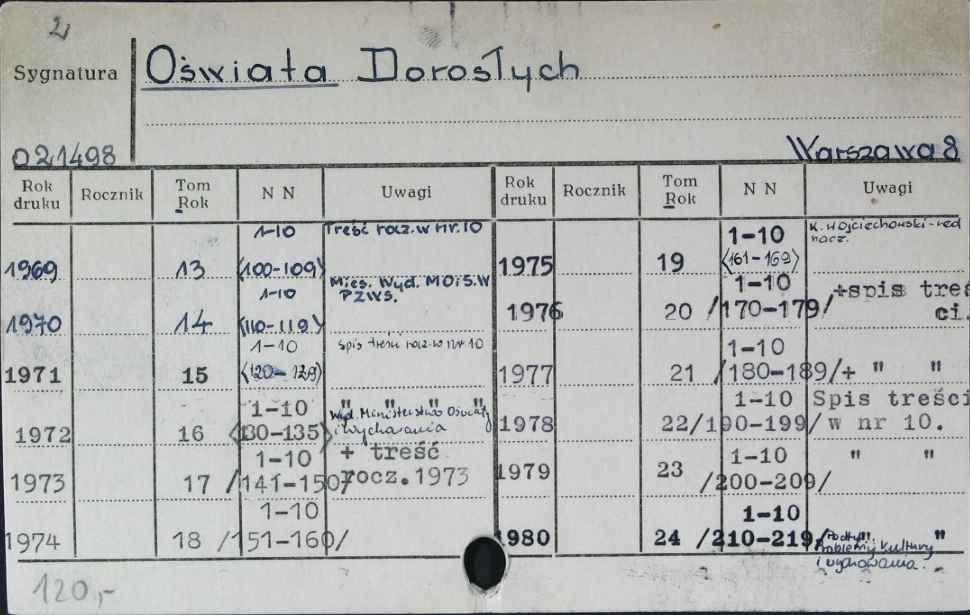 2
Sygnatura Oświata Dorosłych
021498 Warszawa 8
Rok druku Rocznik Tom Rok N N Uwagi Rok druku Rocznik Tom Rok N N Uwagi
1969 13 1-10 <100-109> Treść rocz. w nr. 10
1970 14 1-10 <110-119> Mies. Wyd. MOiS.W PZWS.
1971 15 1-10 <120-129> Spis treści rocz. w nr 10
1972 16 1-10 <130-135> " " " " Wyd. Ministerstwo Oświaty i wychowania
1973 17 1-10 /141-150/ + treść rocz. 1973
1974 18 1-10 /151-160/
1975 19 1-10 <161-169> K. Wojciechowski-red nacz.
1976 20 1-10 /170-179/ +spis treś ci.
1977 21 1-10 /180-189/ + " "
1978 22 1-10 /190-199/ Spis treści w nr 10.
1979 23 1-10 /200-209/ " "
1980 24 1-10 /210-219/ " "
Problemy kultury
i wychowania.
120,-